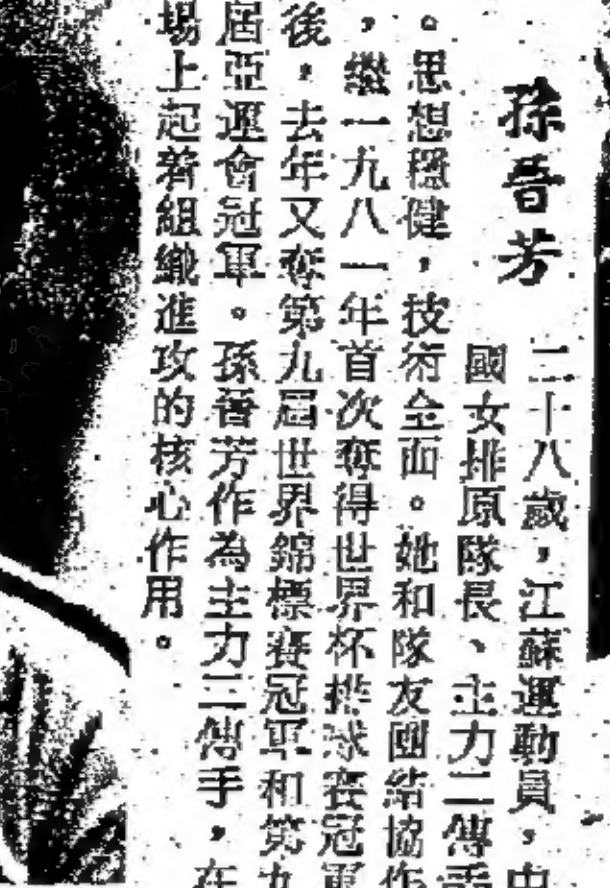 孫晉芳
二十八歲，江蘇運動員，中
國女排原隊長、主力二傳手
。思想穩健，技術全面。她和隊友團結協作
，繼一九八一年首次奪得世界杯排球賽冠軍
後，去年又奪第九屆世界錦標賽冠軍和第九
屆亞運會冠軍。孫晉芳作為主力二傳手，在
場上起着組織進攻的核心作用。